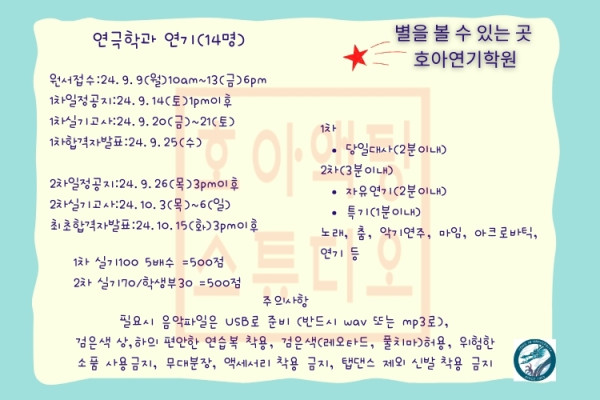 연극학과 연기(14명)
별을 볼 수 있는 곳
호아연기학원
원서접수:24.9.9(월)10am~13(금)6pm
1차일정공지:24.9.14(토)1pm이후
1차실기고사:24.9.20(금)~21(토)
1차합격자발표:24.9.25(수)
2차일정공지:24.9.26(목)3pm이후
2차실기고사:24.10.3(목)~6(일)
최초합격자발표:24.10.15(화)3pm이후
1차 실기100 5배수 =500점
2차 실기70/학생부30 =500점
1차
• 당일대사(2분이내)
2차(3분이내)
• 자유연기(2분이내)
• 특기(1분이내)
노래, 춤, 악기연주, 마임, 아크로바틱,
연기 등
주의사항
필요시 음악파일은 USB로 준비 (반드시 wav 또는 mp3로),
검은색 상,하의 편안한 연습복 착용, 검은색(레오타드, 풀치마)허용, 위험한
소품 사용금지, 무대분장, 액세서리 착용 금지, 탭댄스 제외 신발 착용 금지
호아액팅
스튜디오